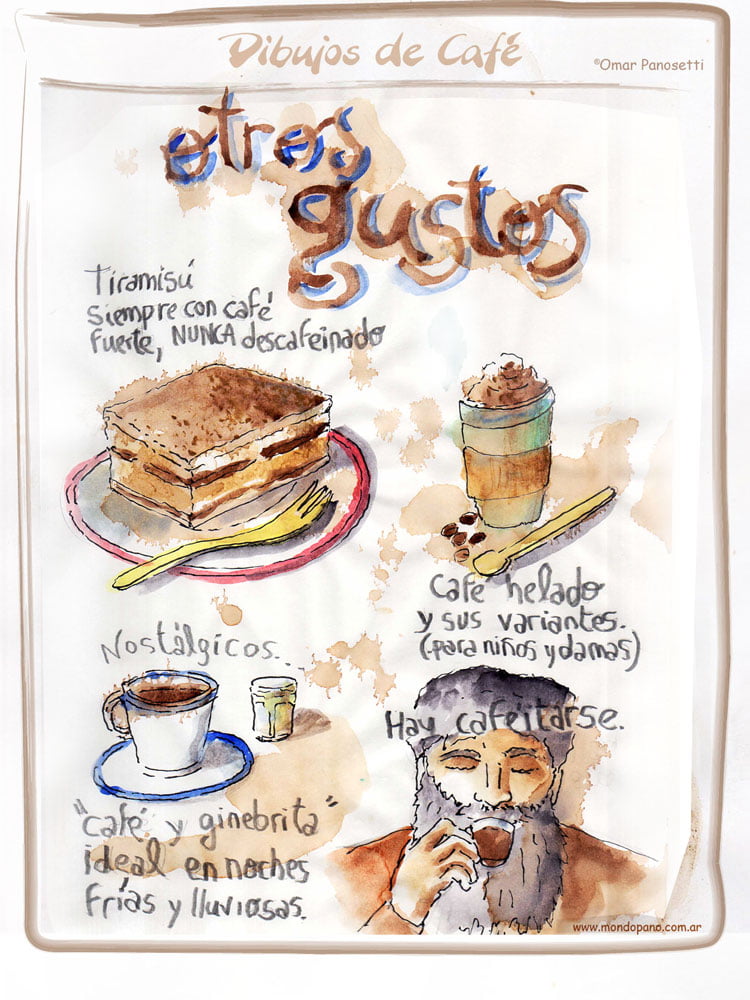 Dibujos de Café
©Omar Panosetti
otros
gustos
Tiramisú
siempre con café
fuerte, NUNCA descafeinado
Café helado
y sus variantes.
(para niños y damas)
Nostálgicos...
Hay cafeitarse.
"café y ginebrita"
ideal en noches
frías y lluviosas.
www.mondopano.com.ar